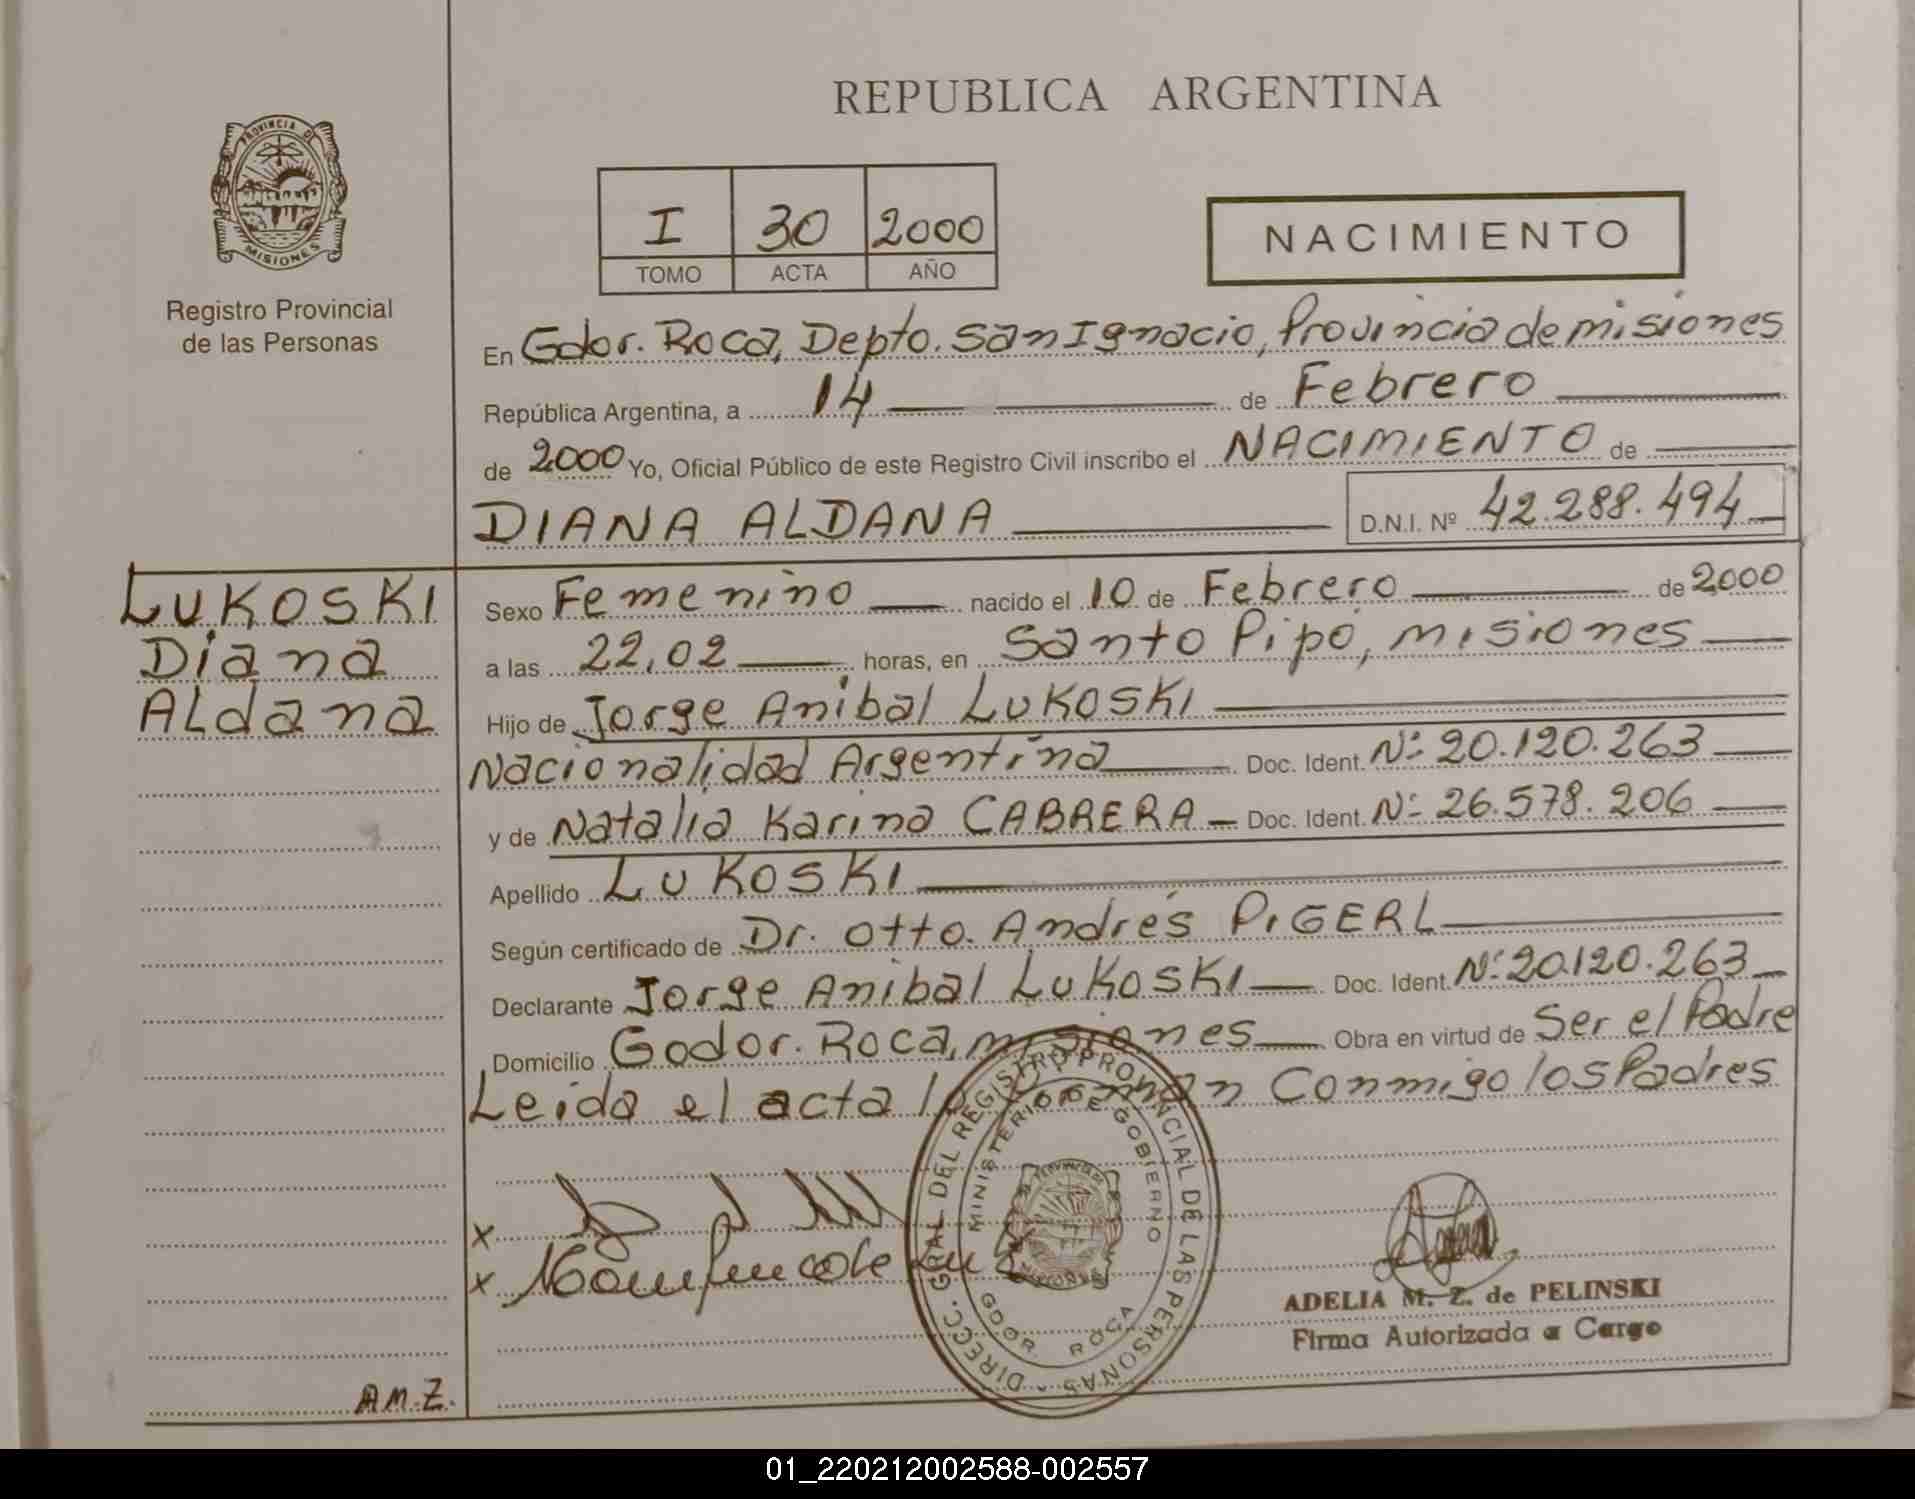 REPUBLICA ARGENTINA
PROVINCIA DE
MISIONES
Registro Provincial
de las Personas
I 30 2000
TOMO ACTA AÑO
NACIMIENTO
En Gdor. Roca, Depto. San Ignacio, Provincia de misiones
República Argentina, a 14 de Febrero
de 2000 Yo, Oficial Público de este Registro Civil inscribo el NACIMIENTO de
DIANA ALDANA D.N.I. Nº 42.288.494
LUKOSKI
Diana
ALdana
Sexo Femenino nacido el 10 de Febrero de 2000
a las 22,02 horas, en Santo Pipó, misiones
Hijo de Jorge Anibal LUKOSKI
Nacionalidad Argentina Doc. Ident. Nº 20.120.263
y de Natalia Karina CABRERA Doc. Ident. Nº 26.578.206
Apellido LUKOSKI
Según certificado de Dr. Otto. Andrés PIGERL
Declarante Jorge Anibal LUKOSKI Doc. Ident. Nº 20.120.263
Domicilio Godor. Roca, misiones Obra en virtud de Ser el Padre
Leida el acta la firman Conmigo los Padres
DIRECC. GRAL DEL REGISTRO PROVINCIAL DE LAS PERSONAS
MINISTERIO DE GOBIERNO
GDOR. ROCA
x
x
ADELIA M. Z. de PELINSKI
Firma Autorizada a Cargo
A.M.Z.
01_220212002588-002557